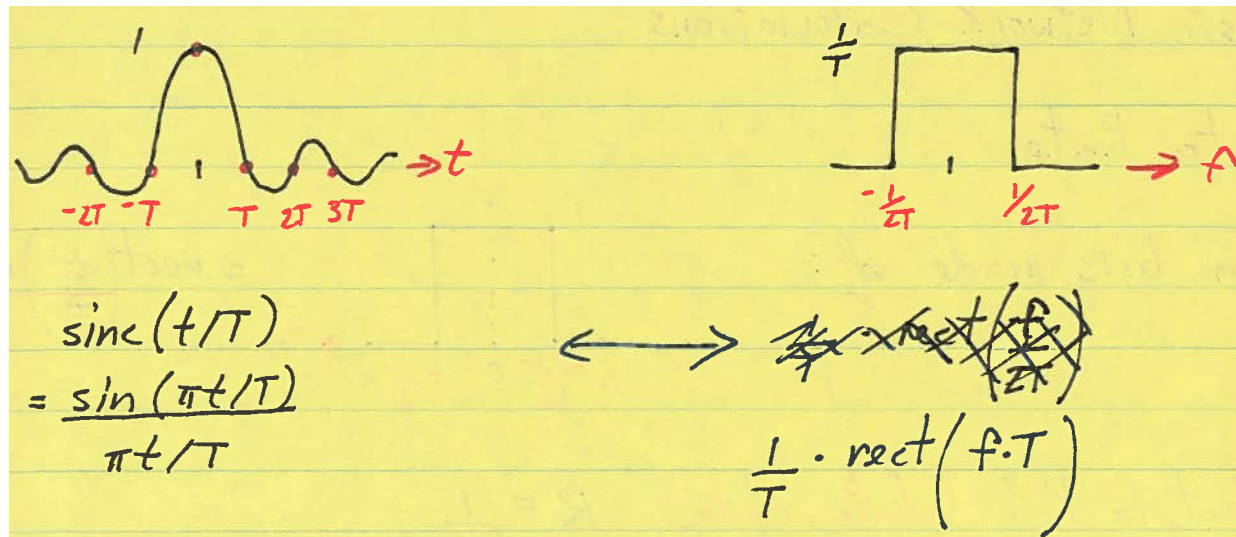 1
1/T
-2T -T T 2T 3T
→ t
-1/2T 1/2T
→ f
sinc(t/T)
= sin(πt/T)
πt/T
⟷
1/T · rect(f·T)